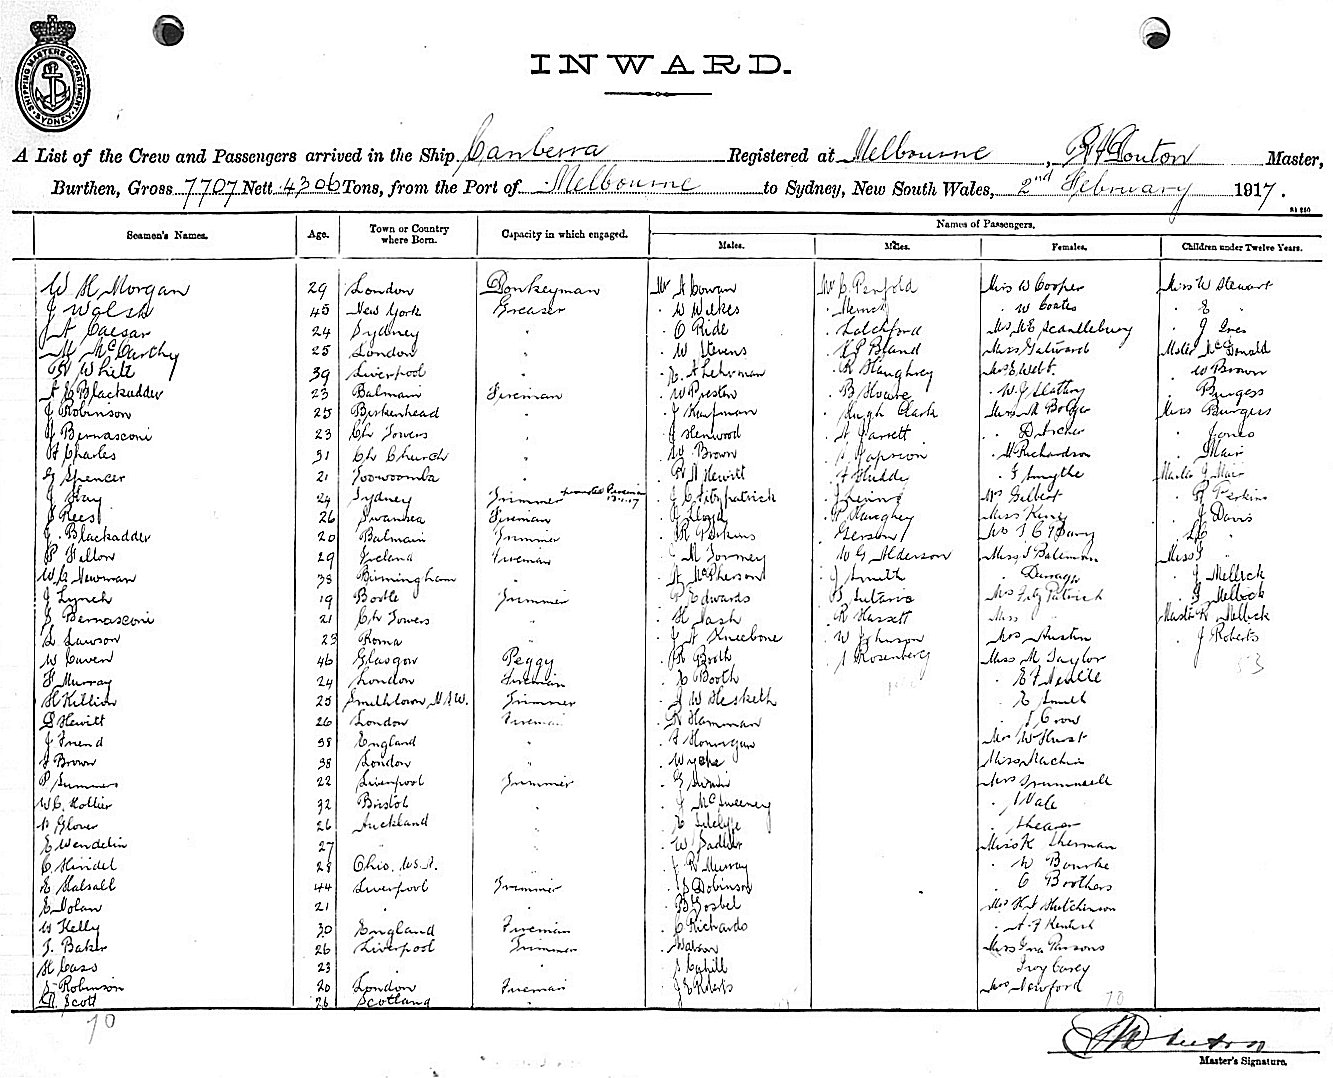 INWARD.
SHIPPING MASTERS DEPARTMENT
SYDNEY
A List of the Crew and Passengers arrived in the Ship Canberra Registered at Melbourne, Master,
Burthen, Gross 7707 Nett 4306 Tons, from the Port of Melbourne to Sydney, New South Wales, 2nd February 1917.
Seamen's Names. Age. Town or Country where Born. Capacity in which engaged. Names of Passengers.
Males. Males. Females. Children under Twelve Years.
W H Morgan 29 London Donkeyman Mr A Cowan Mr C Penfold Miss W Cooper Miss W Stewart
J Walsh 45 New York Greaser . W Wilkes . W Coates . E "
J A Caesar 24 Sydney " . C Ride . Latchford Mrs M E Scantlebury . J Ives
M McCarthy 25 London " . W Stevens . Bland Miss Gatward Master McDonald
R White 39 Liverpool " . A Lehrman . R Haughrey Mrs E Webb . W Brown
A E Blackadder 23 Balmain Fireman . W Preston . B Hoare . W J Slattery . Burgess
J Robinson 25 Birkenhead " . J Kaufman . Hugh Clark Mrs M Bolger Miss Burgess
Bernasconi 23 Ch Towers " . J Henwood . A Jarrett . Jones
A Charles 31 Ch Church " . W Brown . M Richardson . Mair
G Spencer 21 Toowoomba " . R A Hewitt . F Huddy . G Smythe Master J Mair
J Hay 24 Sydney Trimmer . J C Fitzpatrick . J Levins Mrs Gilbert . R Perkins
Rees 26 Swansea Fireman . Lloyd . P Haughey Miss King . J Davis
J. Blackadder 20 Balmain Trimmer . R Perkins . Gerson
P Fallon 29 Ireland Fireman . J M Tormey . W G Alderson Miss J Bateman Miss
W C Newman 38 Birmingham " . A McPherson . J Smith . Darragh . J Mellick
J Lynch 19 Bootle Trimmer . P Edwards Mrs Fitz Patrick . Mellick
Bernasconi 21 Ch Towers " . H Nash . R Hassett Miss " Master R Mellick
L Lawson 23 Roma " . J A Kneebone . W Johnson Mrs Austin . J Roberts
W Caven 46 Glasgow Peggy . R Booth . Rosenberg Miss M Taylor
F Murray 24 London Fireman . E Booth . E F Neville
H Killin 25 Smithtown, N.S.W. Trimmer . J W Hesketh . E Smith
Hewitt 26 London Fireman . R Hamman . Crow
J Friend 38 England " Mrs W Hurst
J Brown 38 London " . Wyche Miss Machin
P Summers 22 Liverpool Trimmer . G Swain
W C. Hollier 32 Bristol " . J McSweeney . Vale
Glover 26 Auckland " . Shearer
E Wendelin 27 " " . W Sadlier Miss K Sherman
C Hindel 28 Ohio, U.S.A. " . J R Murray . W Bourke
E Halsall 44 Liverpool Trimmer . Dobinson . C Boothers
E Nolan 21 " " . B Gosbel Mrs H J Hutchinson
W Kelly 30 England Fireman . C Richards . A F Kentish
T. Baker 26 Liverpool Trimmer . Watson Miss Ina Parsons
H Cass 23 " " . J Cahill . Ivy Carey
J Robinson 20 London Fireman . J E Roberts Mrs Newford
Scott 26 Scotland "
70
70
53
Master's Signature.